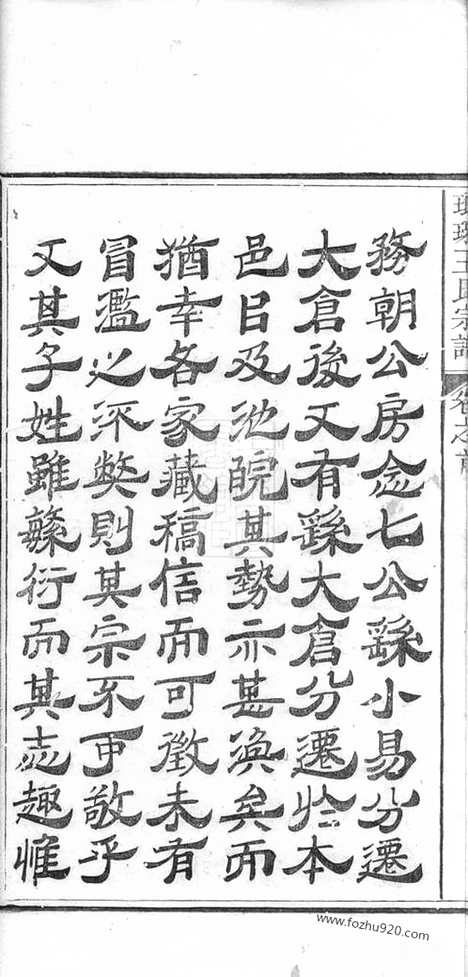 琅琊王氏宗譜 卷之首
務朝公房念七公繇小易分遷
大倉後又有繇大倉分遷於本
邑曰及池皖其勢亦甚渙矣而
猶幸各家藏稿信而可徵未有
冒濫之弊則其宗不可敬乎
又其子姓雖蕃衍而其志趣惟
www.fozhu920.com